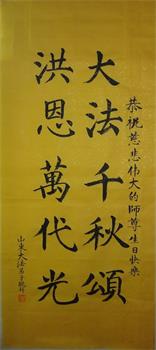 恭祝慈悲偉大的師尊生日快樂
大法千秋頌
洪恩萬代光
山東大法弟子敬拜